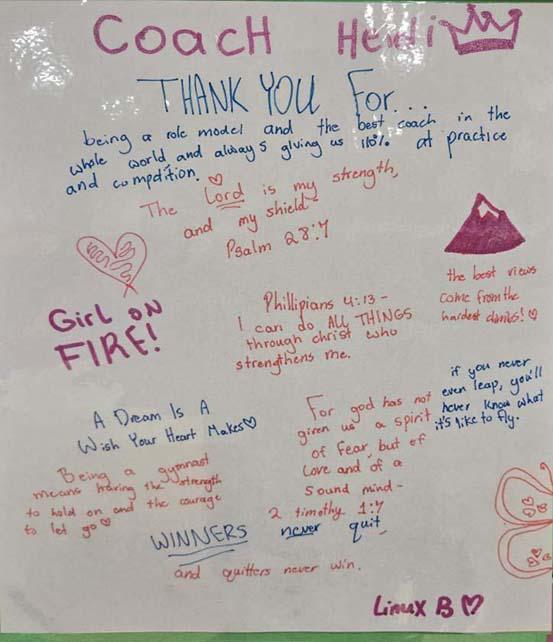 Coach Heidi
THANK YOU For...
being a role model and the best coach in the
whole world, and always giving us 110% at practice
and compdition.
The Lord is my strength,
and my shield-
Psalm 28:7
the best views
come from the
hardest climbs!
GirL ON
FIRE!
Phillipians 4:13-
I can do ALL THINGS
through christ who
strengthens me.
if you never
even leap, you'll
never know what
it's like to fly.
A Dream Is A
Wish Your Heart Makes
For god has not
given us a spirit
of fear, but of
Love and of a
Sound mind-
2 timothy 1:7
Being a gymnast
means having the strength
to hold on and the courage
to let go
WINNERS never quit,
and quitters never win.
Linux B